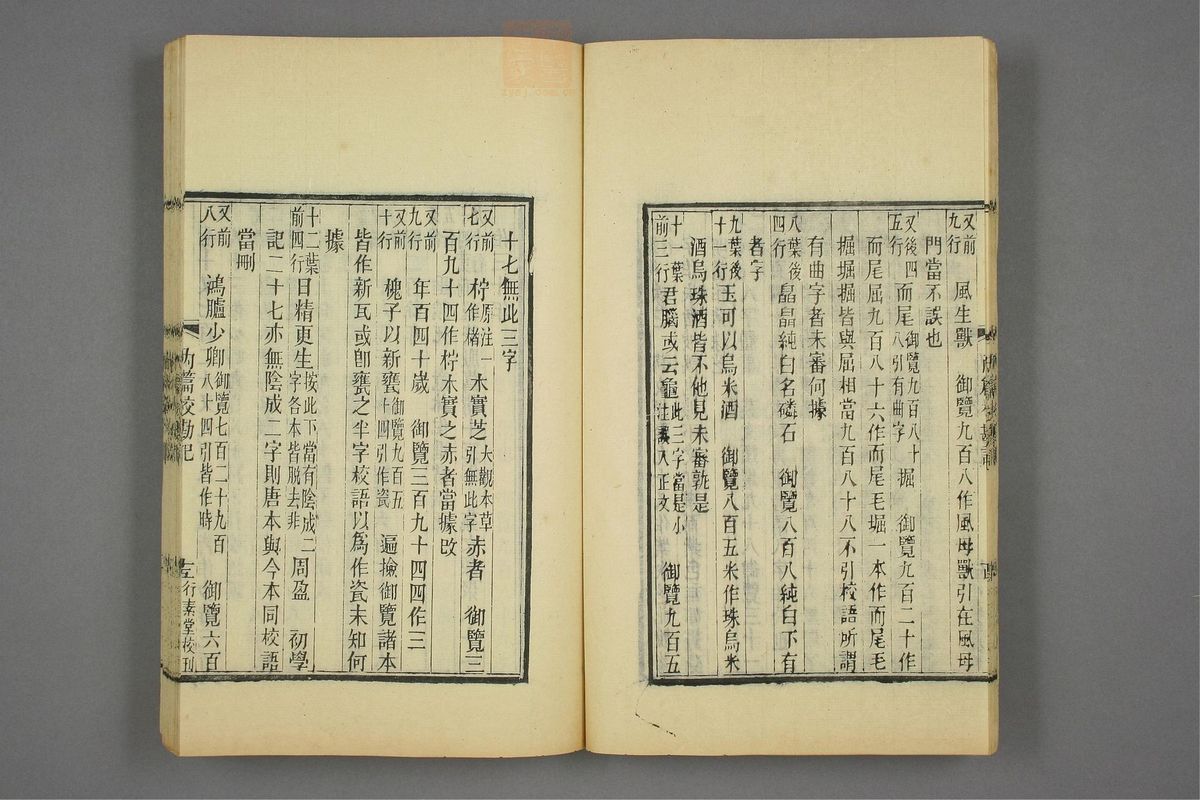 又前九行 風生獸 御覽九百八作風母獸引在風母
門當不誤也
又後四五行 而尾御覽九百八十八引有曲字 掘 御覽九百二十作
而尾屈九百八十六作而尾毛堀一本作而尾毛
掘堀掘皆與屈相當九百八十八不引校語所謂
有曲字者未審何據
八葉後四行 皛皛純白名磷石 御覽八百八純白下有
者字
九葉後十一行 玉可以烏米酒 御覽八百五米作珠烏米
酒烏珠酒皆不他見未審孰是
十一葉前三行 君腦或云龜此三字當是小注誤入正文 御覽九百五
十七無此三字
又前七行 柠原注一作楮 木實芝大觀本草引無此字赤者 御覽三
百九十四作柠木實之赤者當據改
又前九行 年百四十歲 御覽三百九十四四作三
又前十行 槐子以新甕御覽九百五十四引作瓷 遍撿御覽諸本
皆作新瓦或卽甕之半字校語以爲作瓷未知何
據
十二葉前四行 日精更生按此下當有陰成二字各本皆脫去非 周盈 初學
記二十七亦無陰成二字則唐本與今本同校語
當刪
又前八行 鴻臚少卿御覽七百二十九百八十四引皆作時 御覽六百
內篇校勘記
行素堂校刊